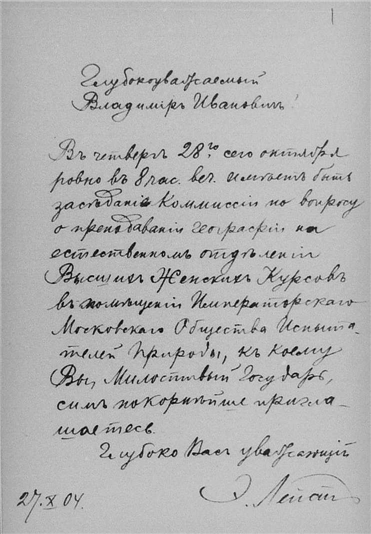 1
Глубокоуважаемый
Владиміръ Ивановичъ!
Въ четвергъ 28го сего октября
ровно въ 8 час. веч. имѣетъ быть
засѣданіе Комиссіи по вопросу
о преподаваніи географіи на
естественномъ отдѣленіи
Высшихъ Женскихъ Курсовъ
въ помѣщеніи Императорскаго
Московскаго Общества Испыта-
телей Природы, къ коему
Вы, Милостивый Государь,
симъ покорнѣйше пригла-
шаетесь.
Глубоко Васъ уважающій
Э. Лейстъ
27.X 04.